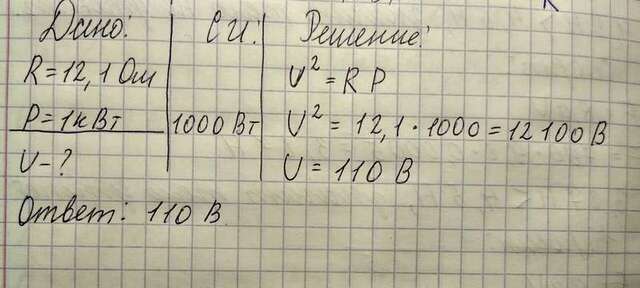 Дано: СИ: Решение:
R = 12,1 Ом U² = R P
P = 1 кВт 1000 Вт U² = 12,1 · 1000 = 12 100 В
U - ? U = 110 В
Ответ: 110 В.